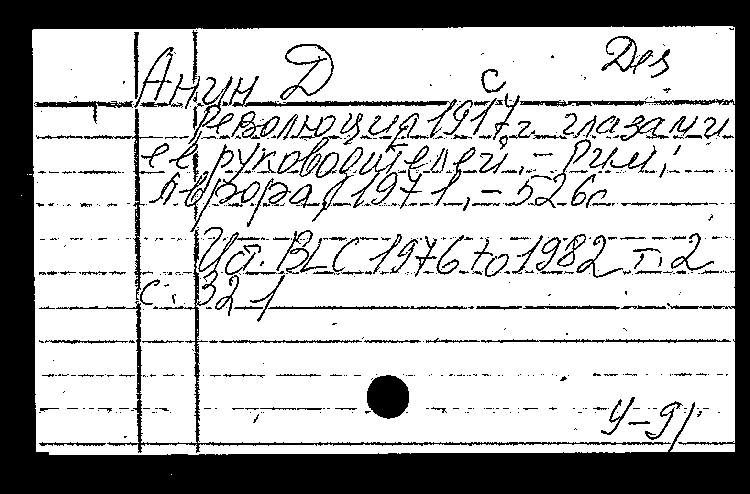 Анин Д с Des
революция 1917 г. глазами
ее руководителей. - Рим,
Аврора, 1971, - 526с
Ист. BLC 1976 to 1982 т. 2
с. 321
У-91